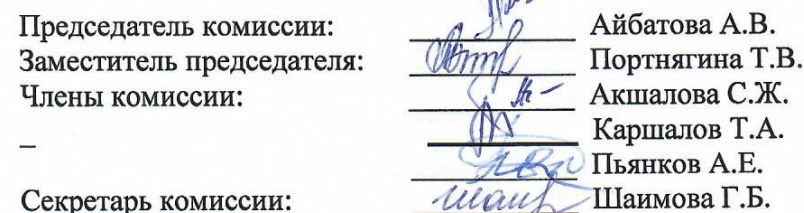 Председатель комиссии: Айбатова А.В.
Заместитель председателя: Портнягина Т.В.
Члены комиссии: Акшалова С.Ж.
Каршалов Т.А.
– Пьянков А.Е.
Секретарь комиссии: Шаимова Г.Б.